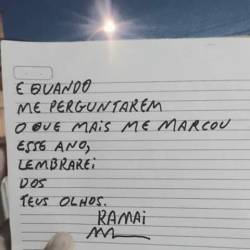 E QUANDO
ME PERGUNTAREM
O QUE MAIS ME MARCOU
ESSE ANO,
LEMBRAREI
DOS
TEUS OLHOS.
RAMAI